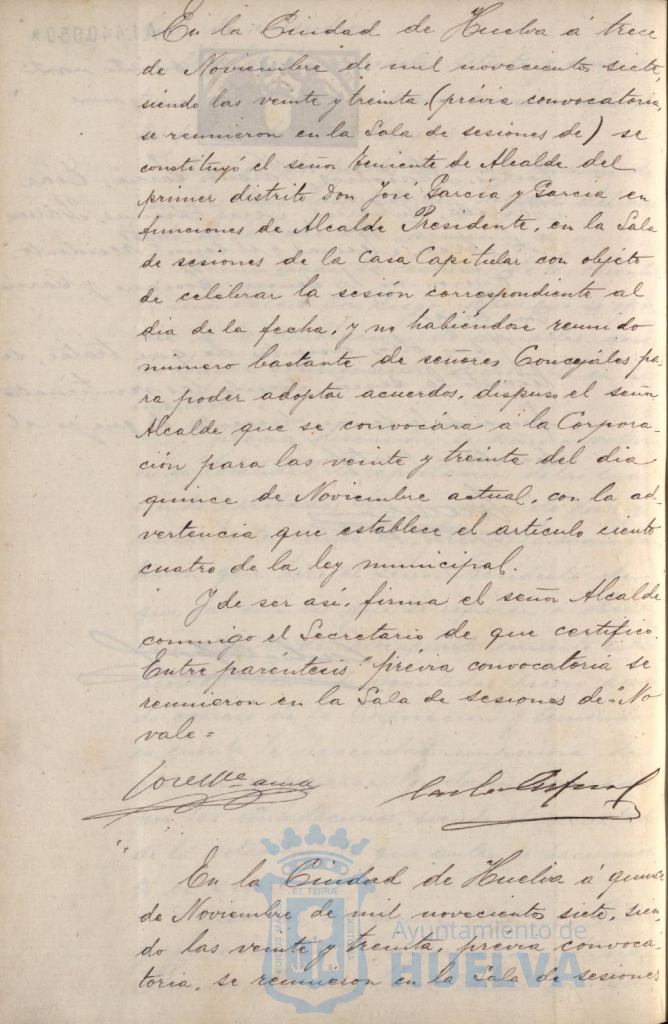 En la Ciudad de Huelva á trece
de Noviembre de mil novecientos siete,
siendo las veinte y treinta, (prévia convocatoria,
se reunieron en la Sala de sesiones de) se
constituyó el señor Teniente de Alcalde del
primer distrito Don José García y García en
funciones de Alcalde Presidente, en la Sala
de sesiones de la Casa Capitular con objeto
de celebrar la sesión correspondiente al
dia de la fecha, y no habiéndose reunido
número bastante de señores Concejáles pa-
ra poder adoptar acuerdos, dispuso el señor
Alcalde que se convocára á la Corpora-
ción para las veinte y treinta del dia
quince de Noviembre actual, con la ad-
vertencia que establece el artículo ciento
cuatro de la ley municipal.
Y de ser así, firma el señor Alcalde
conmigo el Secretario de que certifico.
Entre paréntesis "prévia convocatoria se
reunieron en la Sala de sesiones de" No
vale =
En la Ciudad de Huelva á quince
de Noviembre de mil novecientos siete, sien-
do las veinte y treinta, prévia convoca-
toria, se reunieron en la Sala de sesiones
Ayuntamiento de
HUELVA